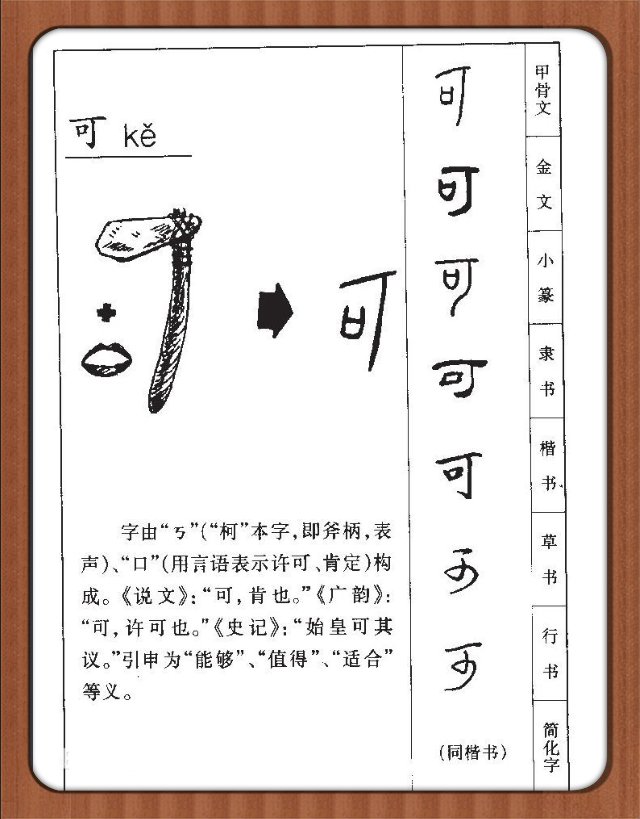 可 kě
可
字由“丂”(“柯”本字,即斧柄,表
声)、“口”(用言语表示许可、肯定)构
成。《说文》:“可,肯也。”《广韵》:
“可,许可也。”《史记》:“始皇可其
议。”引申为“能够”、“值得”、“适合”
等义。
可 甲骨文
可 金文
可 小篆
可 隶书
可 楷书
可 草书
可 行书
(同楷书) 简化字